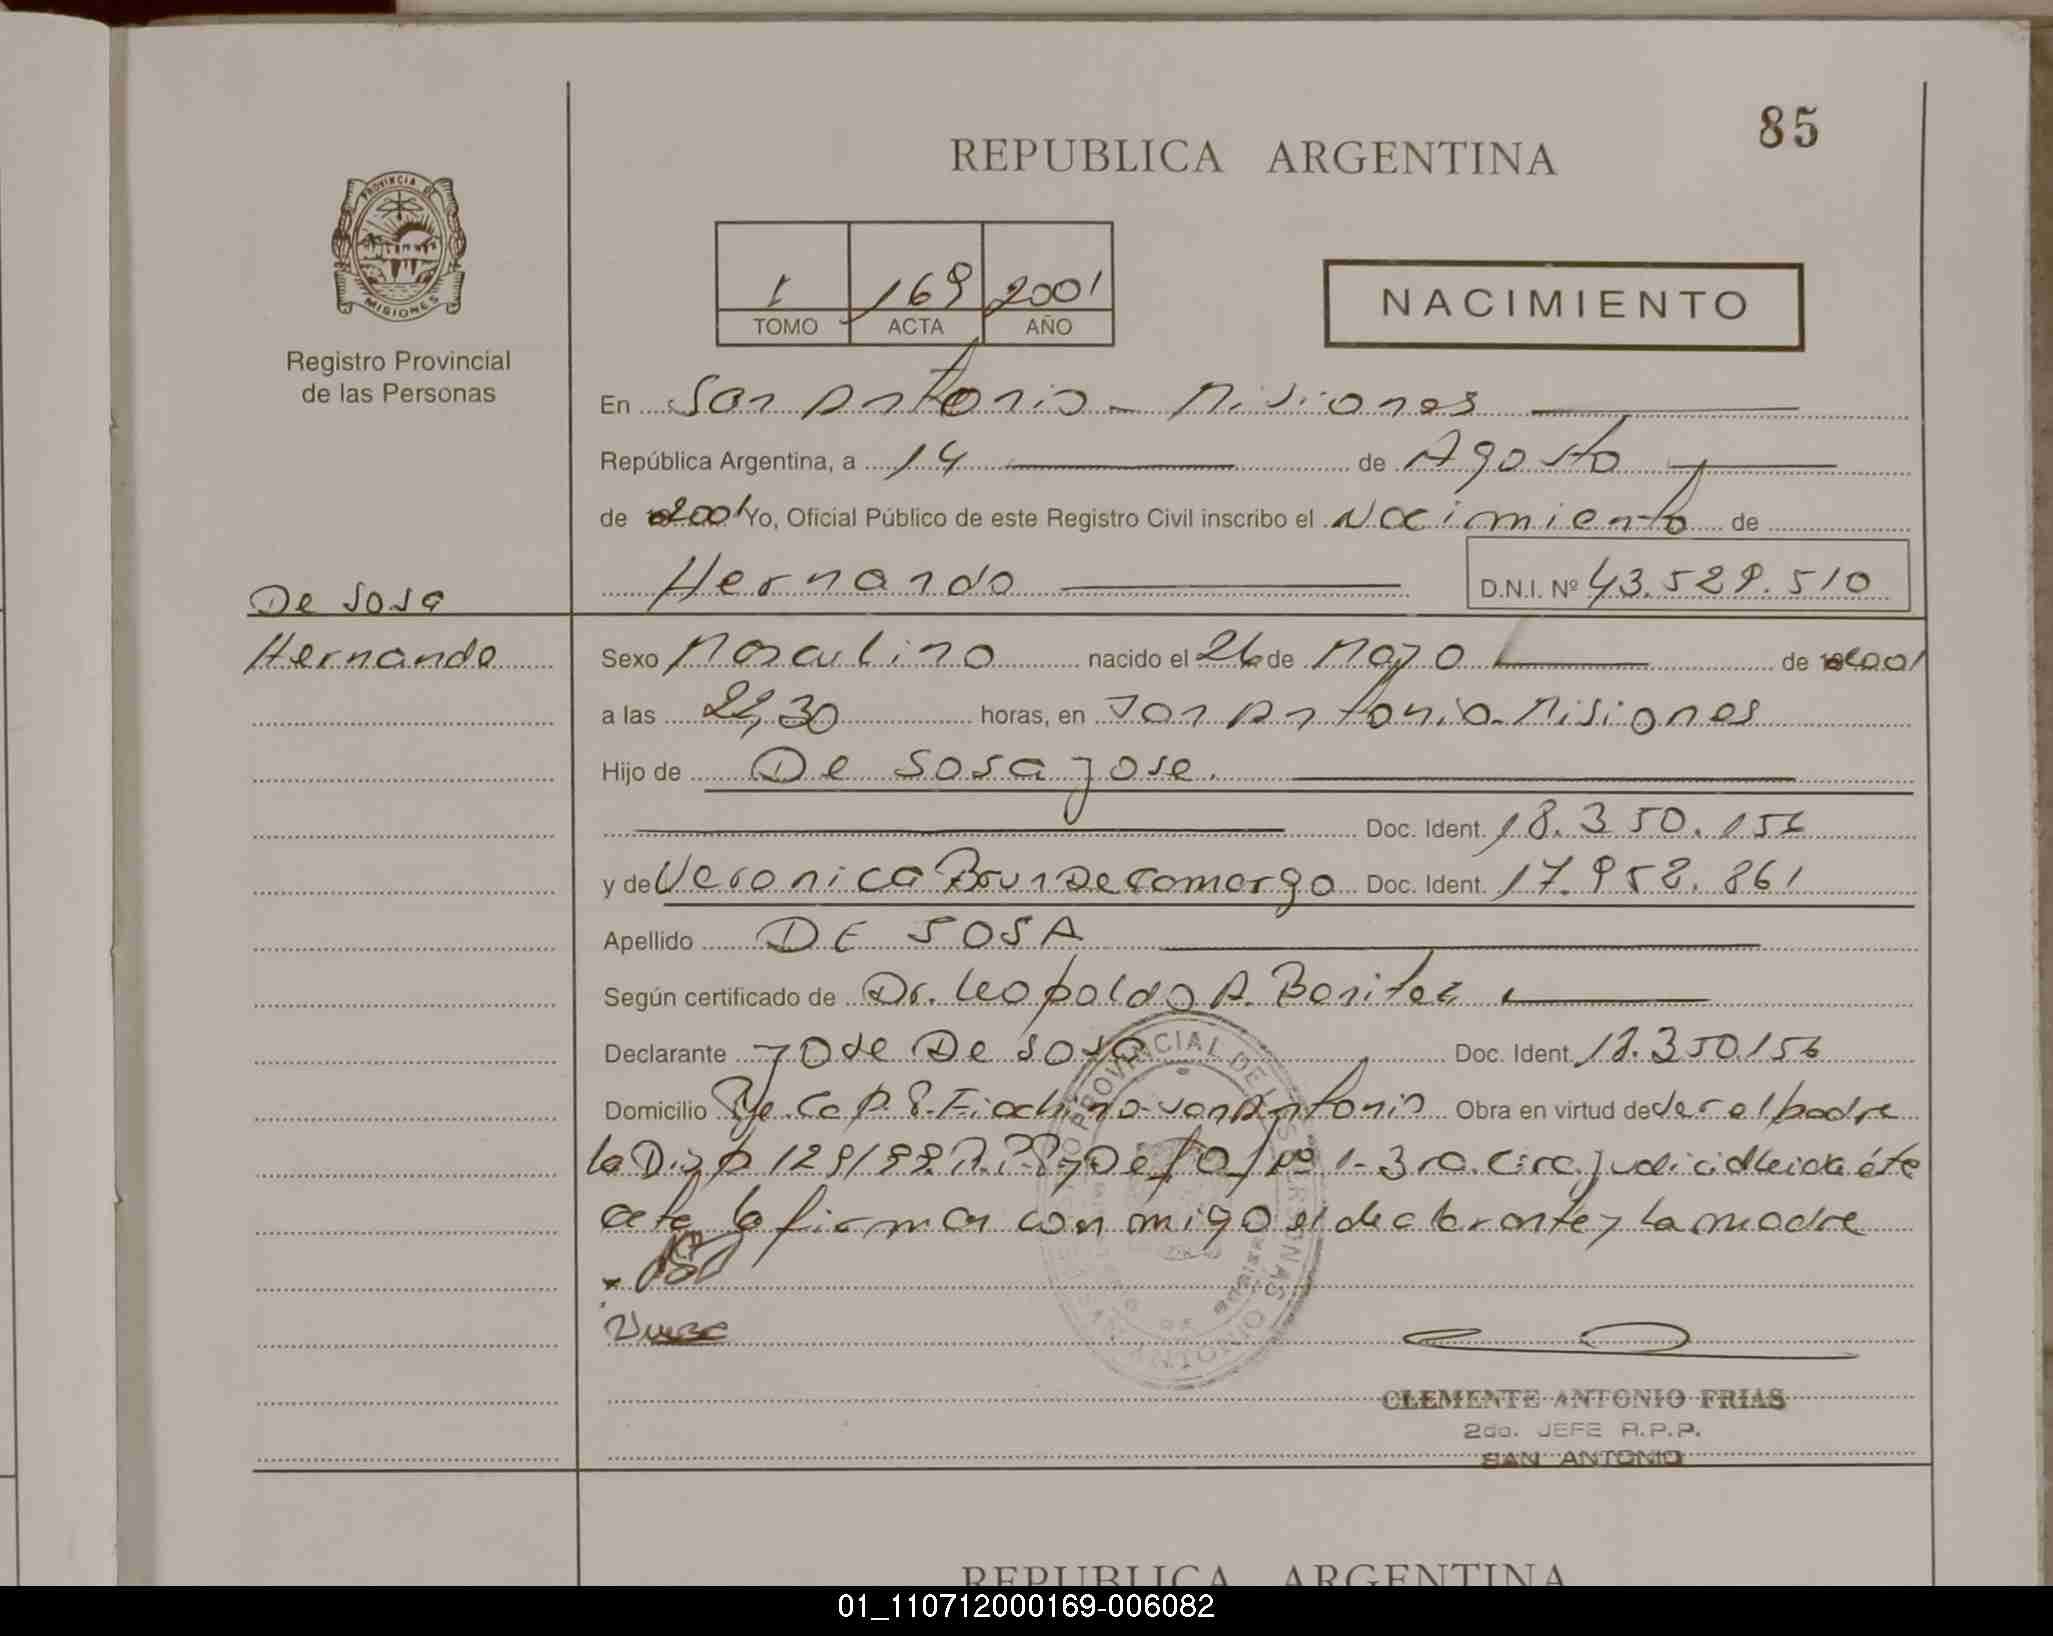 85
REPUBLICA ARGENTINA
PROVINCIA DE
MISIONES
Registro Provincial
de las Personas
1 169 2001
TOMO ACTA AÑO
NACIMIENTO
En San Antonio - Misiones
República Argentina, a 14 de Agosto
de 2001 Yo, Oficial Público de este Registro Civil inscribo el Nacimiento de
Hernando D.N.I. Nº 43.529.510
De Sosa
Hernando
Sexo Masculino nacido el 26 de Mayo de 2001
a las 22,30 horas, en San Antonio - Misiones
Hijo de De Sosa Jose.
Doc. Ident. 18.350.156
y de Veronica Brun De Camargo Doc. Ident. 17.952.861
Apellido DE SOSA
Según certificado de Dr. Leopoldo A. Benitez
Declarante Jose De Sosa Doc. Ident. 18.350.156
Domicilio San Antonio Obra en virtud de ser el padre
la Disp 129/99 1-3ra. Circ. Judicial leida éste
acta la firman conmigo el declarante y la madre
REGISTRO PROVINCIAL DE LAS PERSONAS
SAN ANTONIO
CLEMENTE ANTONIO FRIAS
2do. JEFE R.P.P.
SAN ANTONIO
REPUBLICA ARGENTINA
01_110712000169-006082